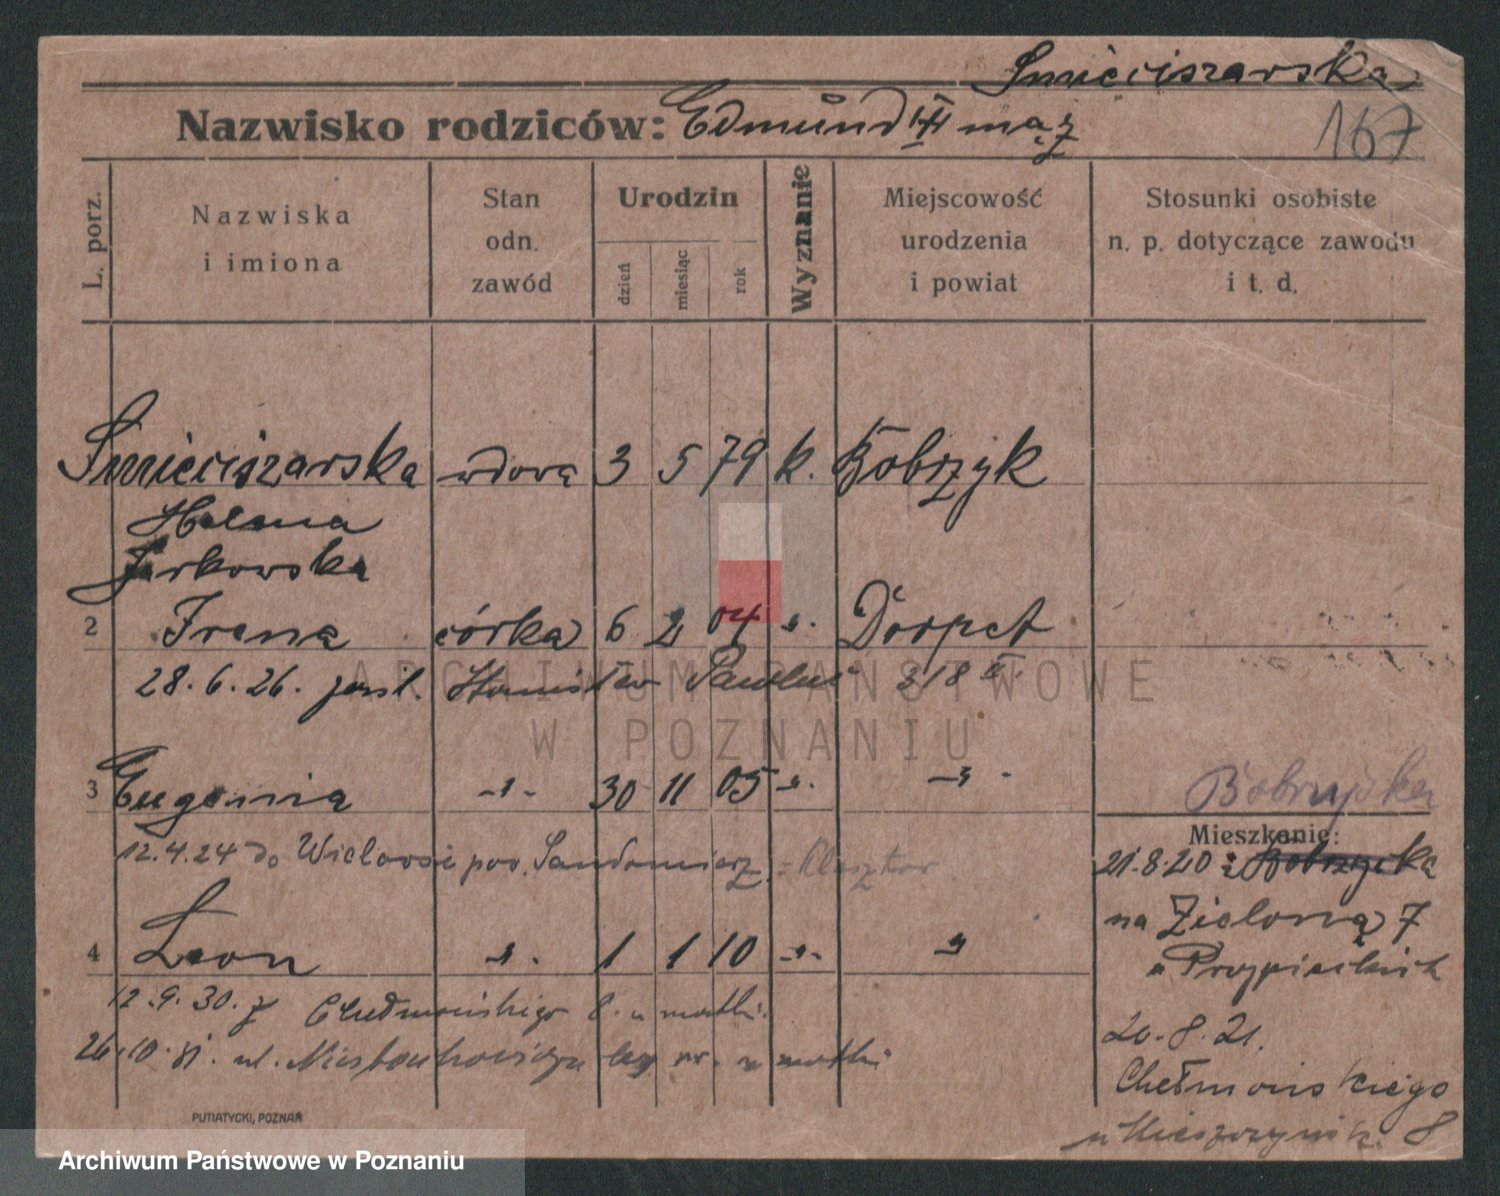 Śmieciszarska
Nazwisko rodziców: Edmund mąż
167
L. porz.
Nazwiska
i imiona
Stan
odn.
zawód
Urodzin
dzień
miesiąc
rok
Wyznanie
Miejscowość
urodzenia
i powiat
Stosunki osobiste
n. p. dotyczące zawodu
i t. d.
Śmieciszarska wdowa 3 5 79 k. Bobrzyk
Helena
Żurkowska
2 Irena córka 6 2 04 -"- Dorpat
28.6.26. Stanisław 18
3 Eugenia -"- 30 11 05 -"- -"-
12.4.24 do pow. Sandomierz
4 Leon -"- 1 1 10 -"- "
12.9.30. Chełmońskiego 8. u matki
26.10.31. ul. u matki
Mieszkanie:
21.8.20 z
na Zieloną 7
20.8.21.
Chełmońskiego
8
PUTIATYCKI, POZNAŃ
ARCHIWUM PAŃSTWOWE
W POZNANIU
Archiwum Państwowe w Poznaniu